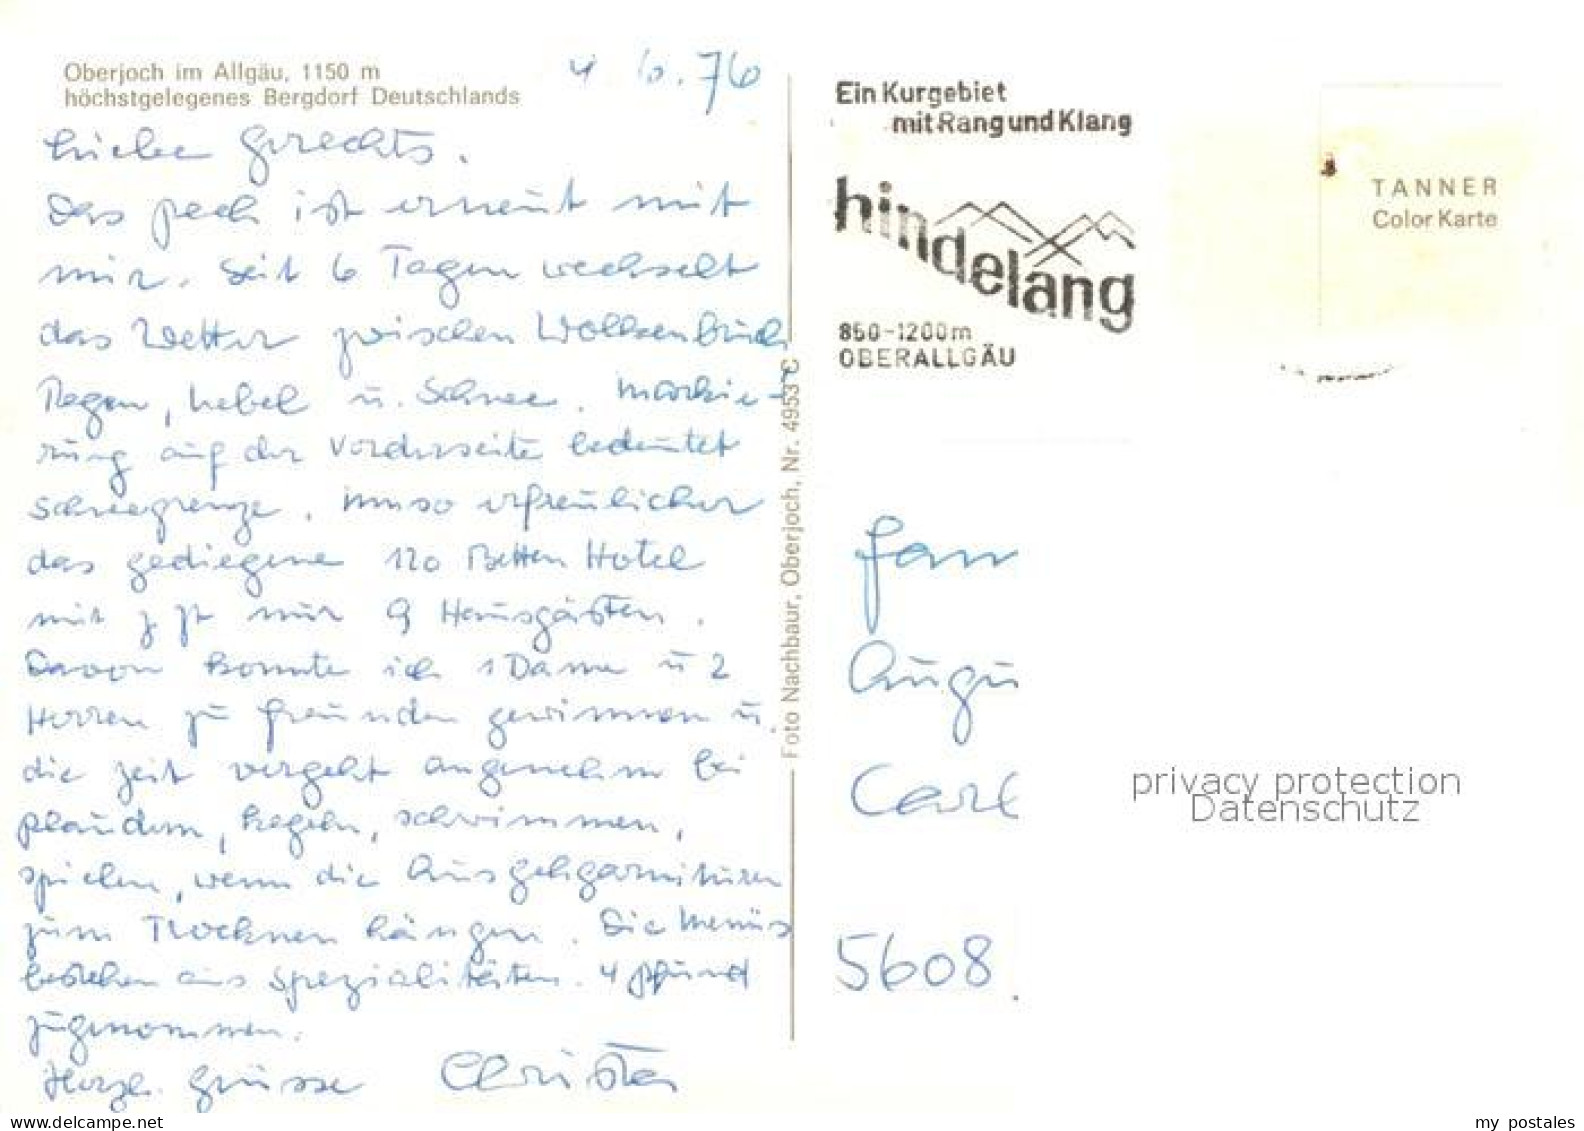 Oberjoch im Allgäu, 1150 m
höchstgelegenes Bergdorf Deutschlands
4.6.76
Liebe Gerechts.
Das Pech ist erneut mit
mir. Seit 6 Tagen wechselt
das Wetter zwischen Wolkenbruch
Regen, Nebel u. Schnee. Markie-
rung auf der Vorderseite bedeutet
Schneegrenze. Umso erfreulicher
das gediegene 120 Betten Hotel
mit z Zt nur 9 Hausgästen.
Davon konnte ich 1 Dame u 2
Herren zu Freunden gewinnen u.
die Zeit vergeht angenehm bei
plaudern, kegeln, schwimmen,
spielen, wenn die Ausgehgarnituren
zum Trocknen hängen. Die Menüs
bestehen aus Spezialitäten. 4 Pfund
zugenommen.
Herzl. Grüsse Christa
Foto Nachbaur, Oberjoch, Nr. 4953 C
Ein Kurgebiet
mit Rang und Klang
hindelang
850-1200m
OBERALLGÄU
TANNER
Color Karte
Fam
Augu
Carl
5608
privacy protection
Datenschutz
www.delcampe.net
my postales